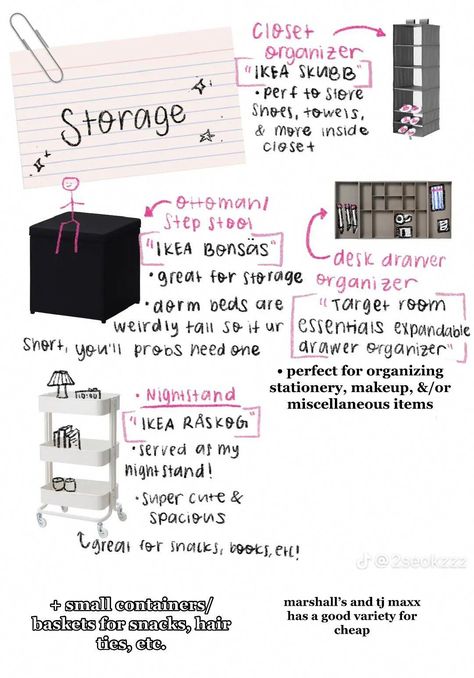 Storage
closet
organizer
"IKEA SKUBB"
• perf to store
shoes, towels,
& more inside
closet
ottoman/
step stool
"IKEA BONSÄS"
• great for storage
• dorm beds are
weirdly tall so if ur
short, you'll probs need one
desk drawer
organizer
"Target room
essentials expandable
drawer organizer"
• perfect for organizing
stationery, makeup, &/or
miscellaneous items
• Nightstand
"IKEA RÅSKOG"
• served as my
nightstand!
• super cute &
spacious
great for snacks, books, etc!
@2seokzzz
+ small containers/
baskets for snacks, hair
ties, etc.
marshall's and tj maxx
has a good variety for
cheap